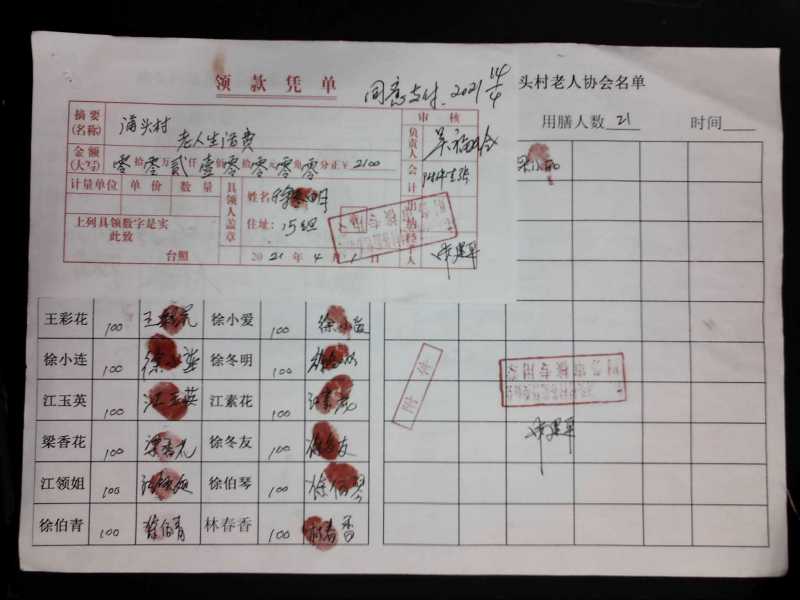 领款凭单
同意支付. 2021 14/4
头村老人协会名单
用膳人数 21 时间
摘要(名称) 浦头村老人生活费
审核
负责人
金额(大写) 零拾零万贰仟壹佰零拾零元零角零分正￥2100
会计
计量单位 单价 数量
具领人盖章
姓名 徐冬明
住址: 15组
出纳
经手人
上列具领数字是实
此致
台照
2021年4月1日
王彩花 100 王彩花 徐小爱 100 徐小爱
徐小连 100 徐小莲 徐冬明 100
江玉英 100 江玉英 江素花 100 江素花
梁香花 100 梁香花 徐冬友 100 徐冬友
江领姐 100 江领姐 徐伯琴 100 徐伯琴
徐伯青 100 徐伯青 林春香 100 林春香
附件
财务审核专用章